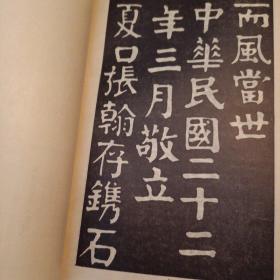 而風當世
中華民國二十二
年三月敬立
夏口張翰存鐫石